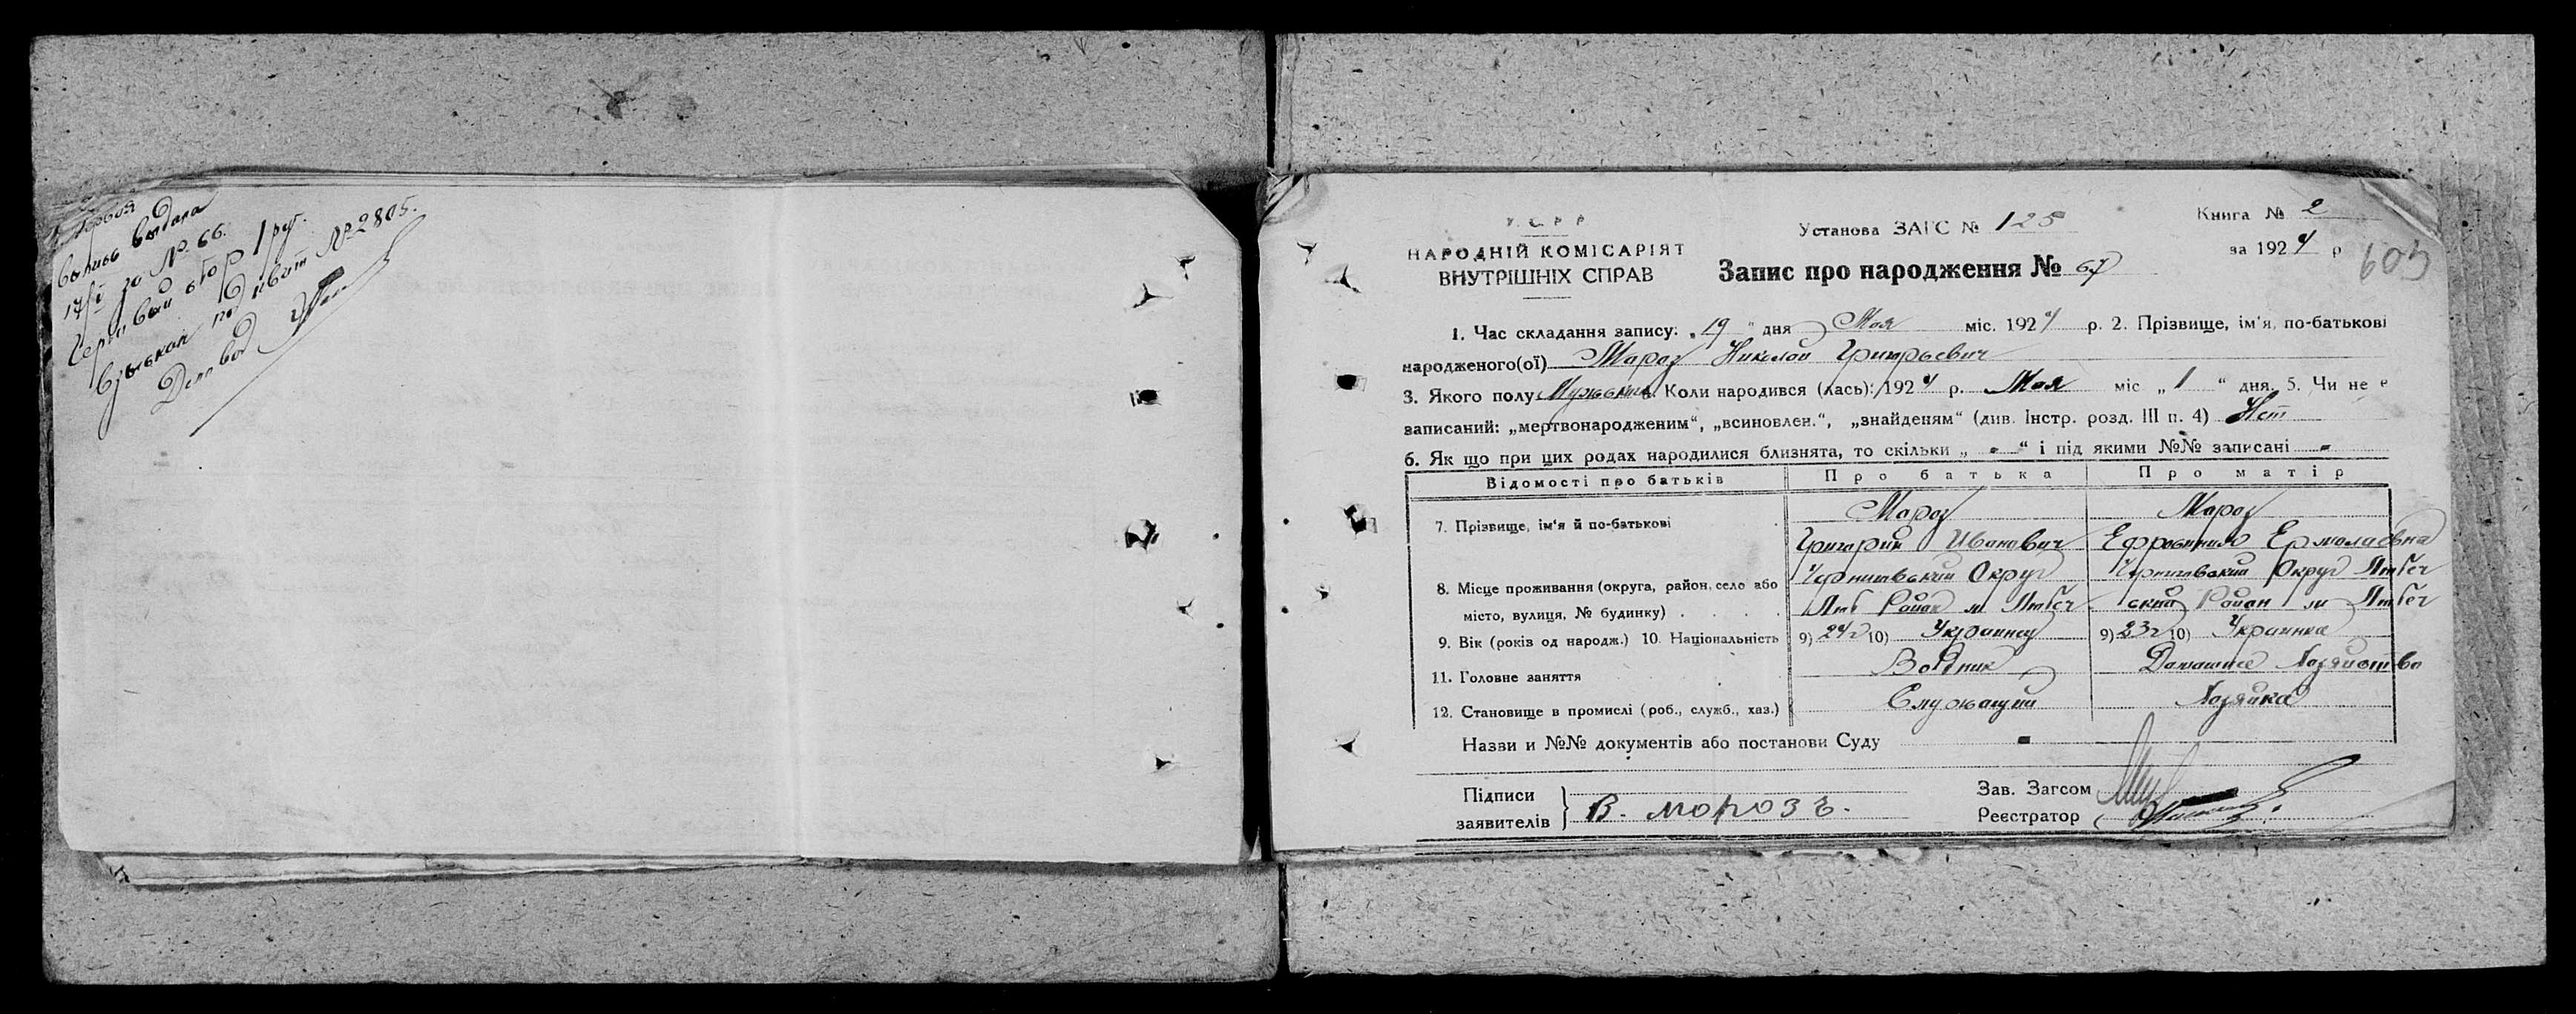 выпись выдана
за № 66.
Гербовый сбор 1 руб.
взыскан по квит №2805.
Делов
У.С.Р.Р
НАРОДНІЙ КОМІСАРІЯТ
ВНУТРІШНІХ СПРАВ
Установа ЗАГС № 125
Книга № 2
за 1924 р
603
Запис про народження № 67
1. Час складання запису: „19“ дня Мая міс. 1924 р. 2. Прізвище, ім'я, по-батькові
народженого(ої) Мороз Николай Григорьевич
3. Якого полу Мужьский. Коли народився (лась): 1924 р. Мая міс „1“ дня. 5. Чи не е
записаний: „мертвонародженим“, „всиновлен.“, „знайденям“ (див. Інстр. розд. III п. 4) Нет
6. Як що при цих родах народилися близнята, то скільки „-“ і під якими №№ записані -
Відомості про батьків Про батька Про матір
7. Прізвище, ім'я й по-батькові
Мороз
Григорий Иванович
Мороз
Ефросиния Ермолаевна
8. Місце проживання (округа, район, село або
місто, вулиця, № будинку) . . . .
Черниговский Округ
Люб Район м Любеч
Черниговский Округ Любеч
ский Район м Любеч
9. Вік (років од народж.) 10. Національність 9) 24г 10) Украинец 9) 23г 10) Украинка
11. Головне заняття Водник Домашнее Хозяйство
12. Становище в промислі (роб., служб., хаз.) Служащий Хозяйка
Назви и №№ документів або постанови Суду -
Підписи
заявителів } В. морозъ.
Зав. Загсом
Реєстратор